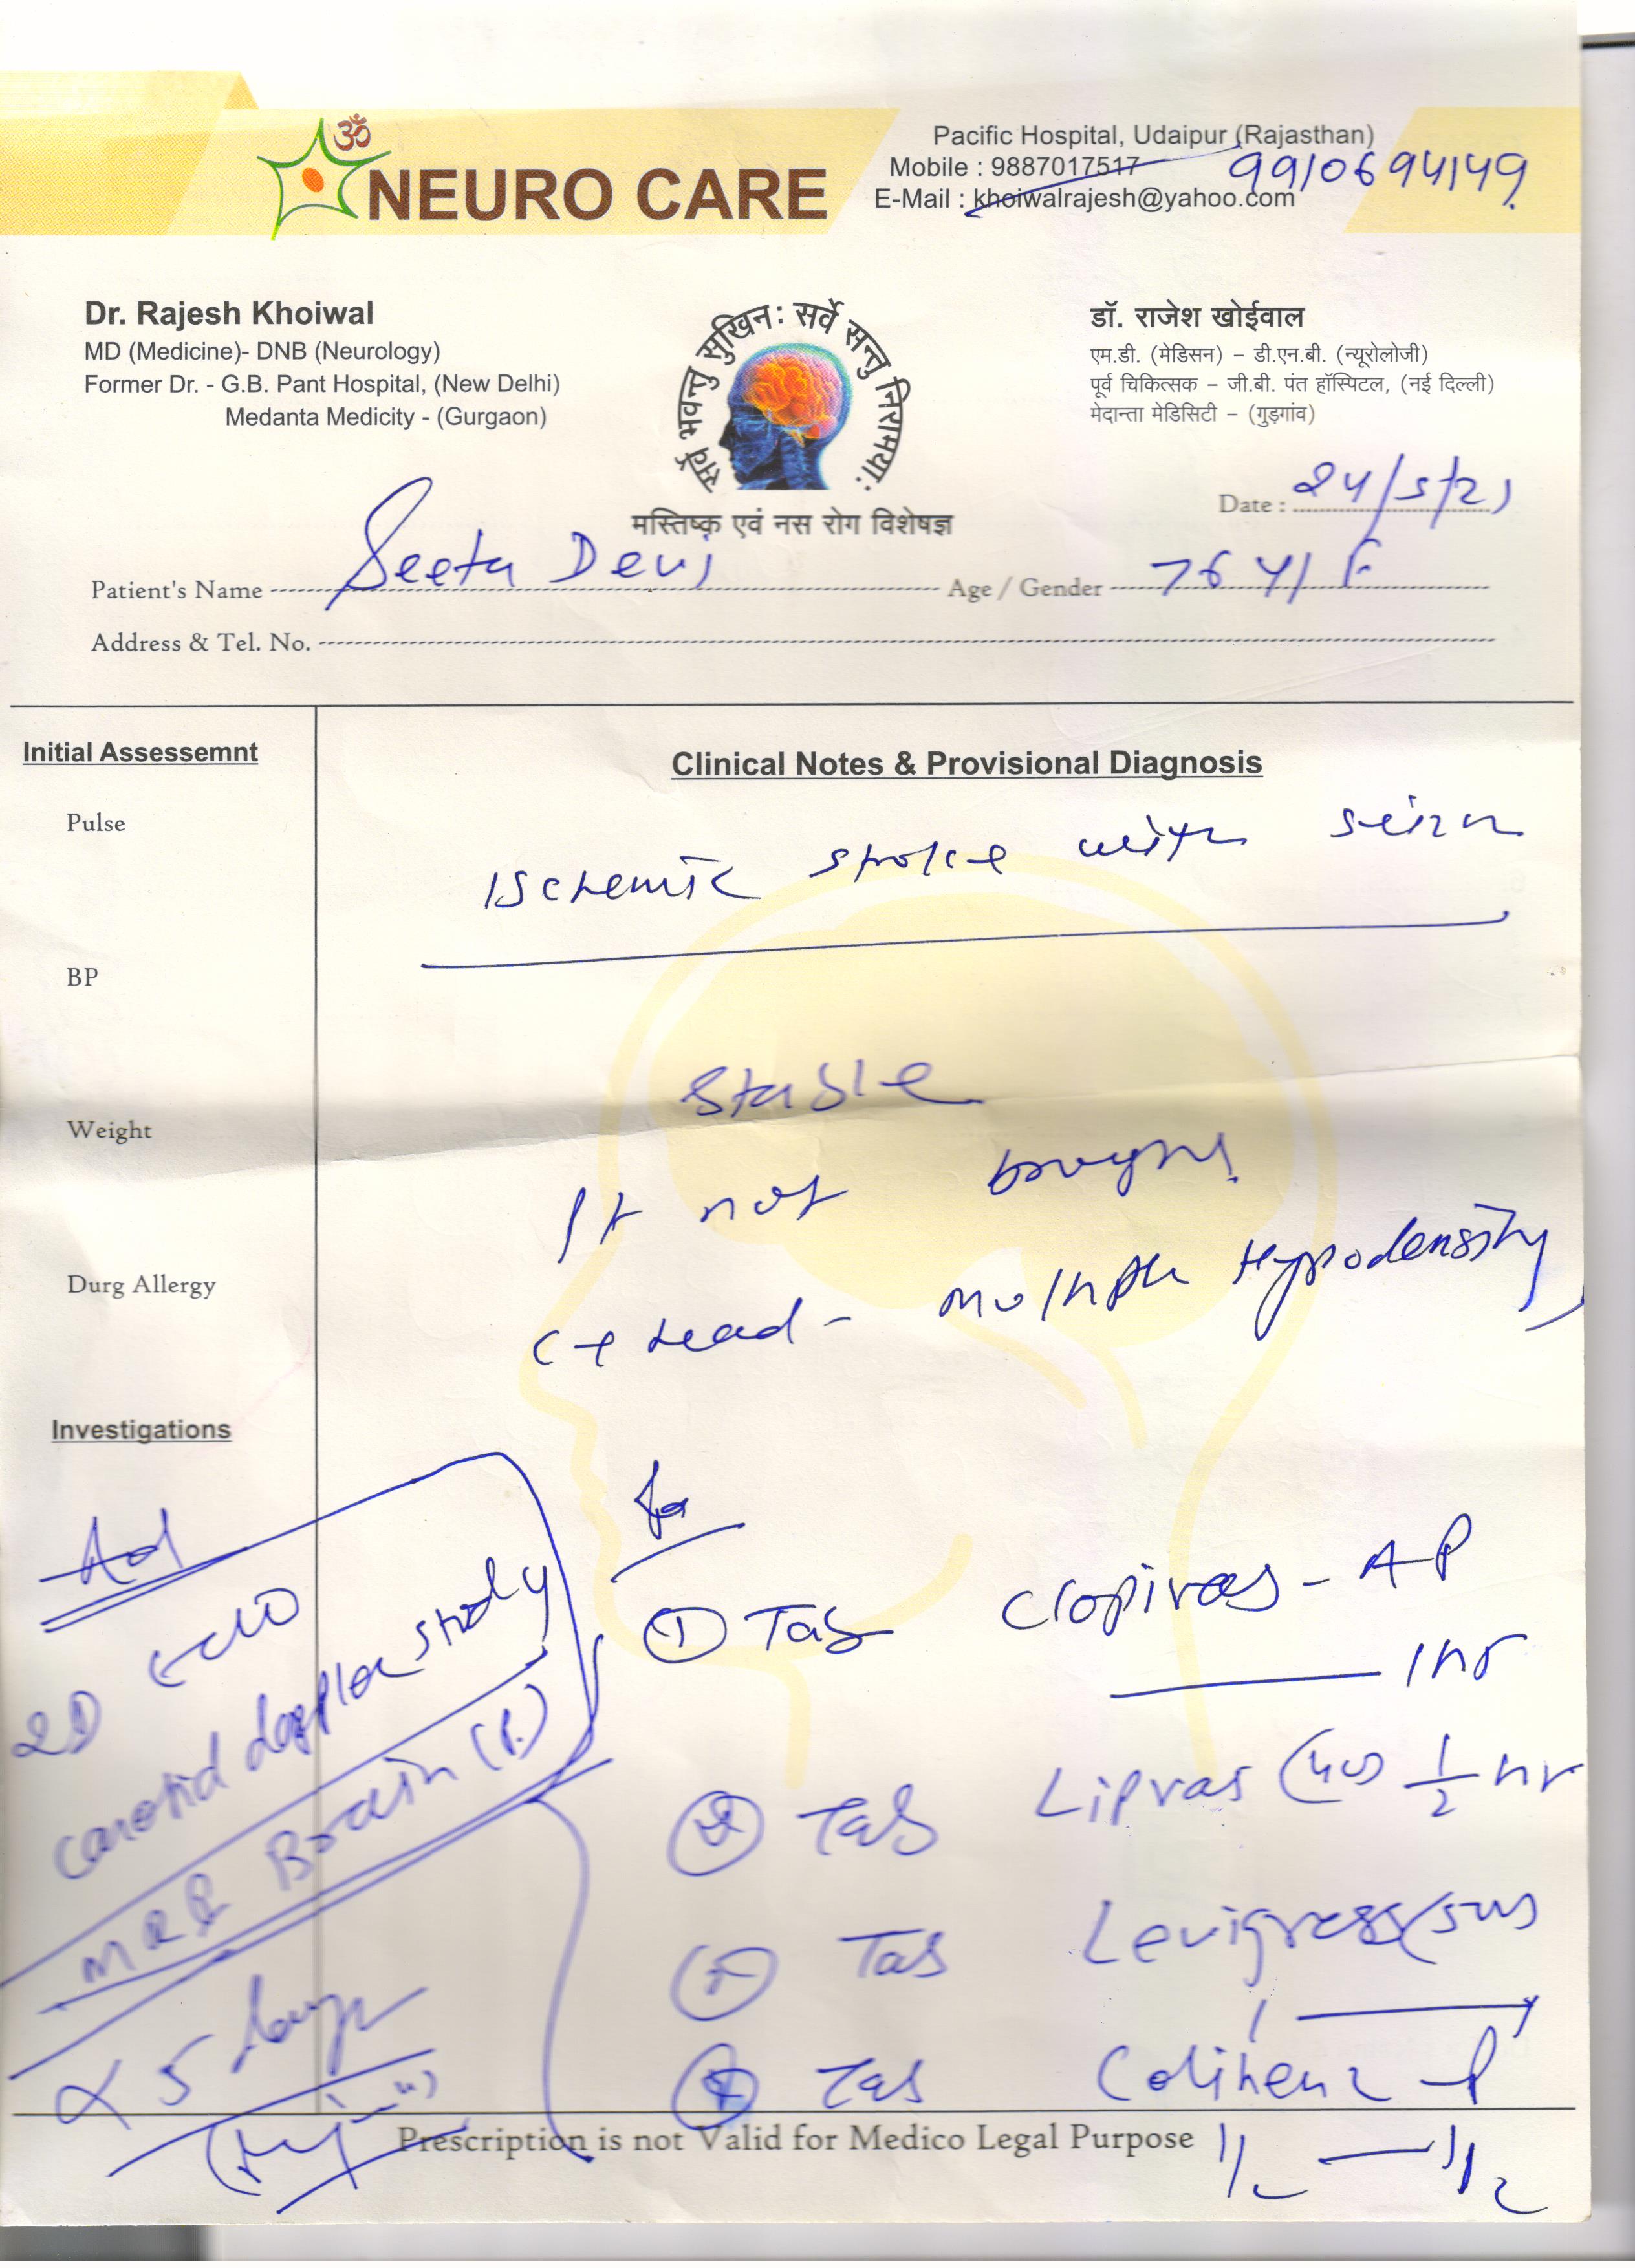 ॐ
NEURO CARE
Pacific Hospital, Udaipur (Rajasthan)
Mobile : 9887017517 9910694149
E-Mail : khoiwalrajesh@yahoo.com
Dr. Rajesh Khoiwal
MD (Medicine)- DNB (Neurology)
Former Dr. - G.B. Pant Hospital, (New Delhi)
Medanta Medicity - (Gurgaon)
सर्वे भवन्तु सुखिन: सर्वे सन्तु निरामया:
मस्तिष्क एवं नस रोग विशेषज्ञ
डॉ. राजेश खोईवाल
एम.डी. (मेडिसन) – डी.एन.बी. (न्यूरोलोजी)
पूर्व चिकित्सक – जी.बी. पंत हॉस्पिटल, (नई दिल्ली)
मेदान्ता मेडिसिटी – (गुड़गांव)
Date : 24/5/21
Patient's Name Seeta Devi Age / Gender 76 Y/ F
Address & Tel. No.
Initial Assessemnt
Clinical Notes & Provisional Diagnosis
Pulse
Ischemic stroke with
BP
Stable
Weight
Pt not
Durg Allergy
CT Head - Multiple Hypodensity
Investigations
Ad
2D ECHO
carotid doppler study
MRI Brain (P)
x 5 days
① Tab Clopivas - AP
1 hr
② Tab Lipvas (40) 1/2 hr
Tab Levigress (500)
1 1
Tab
1/2 — 1/2
Prescription is not Valid for Medico Legal Purpose